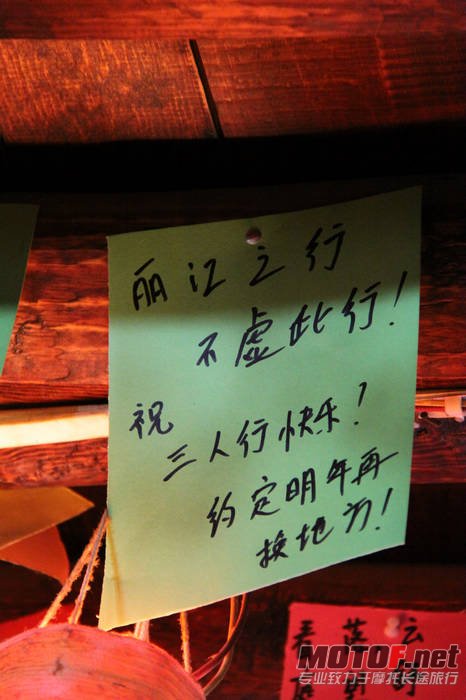 丽江之行
不虚此行!
祝
三人行快乐!
约定明年再
换地方!
MOTOF.net
专业致力于摩托长途旅行